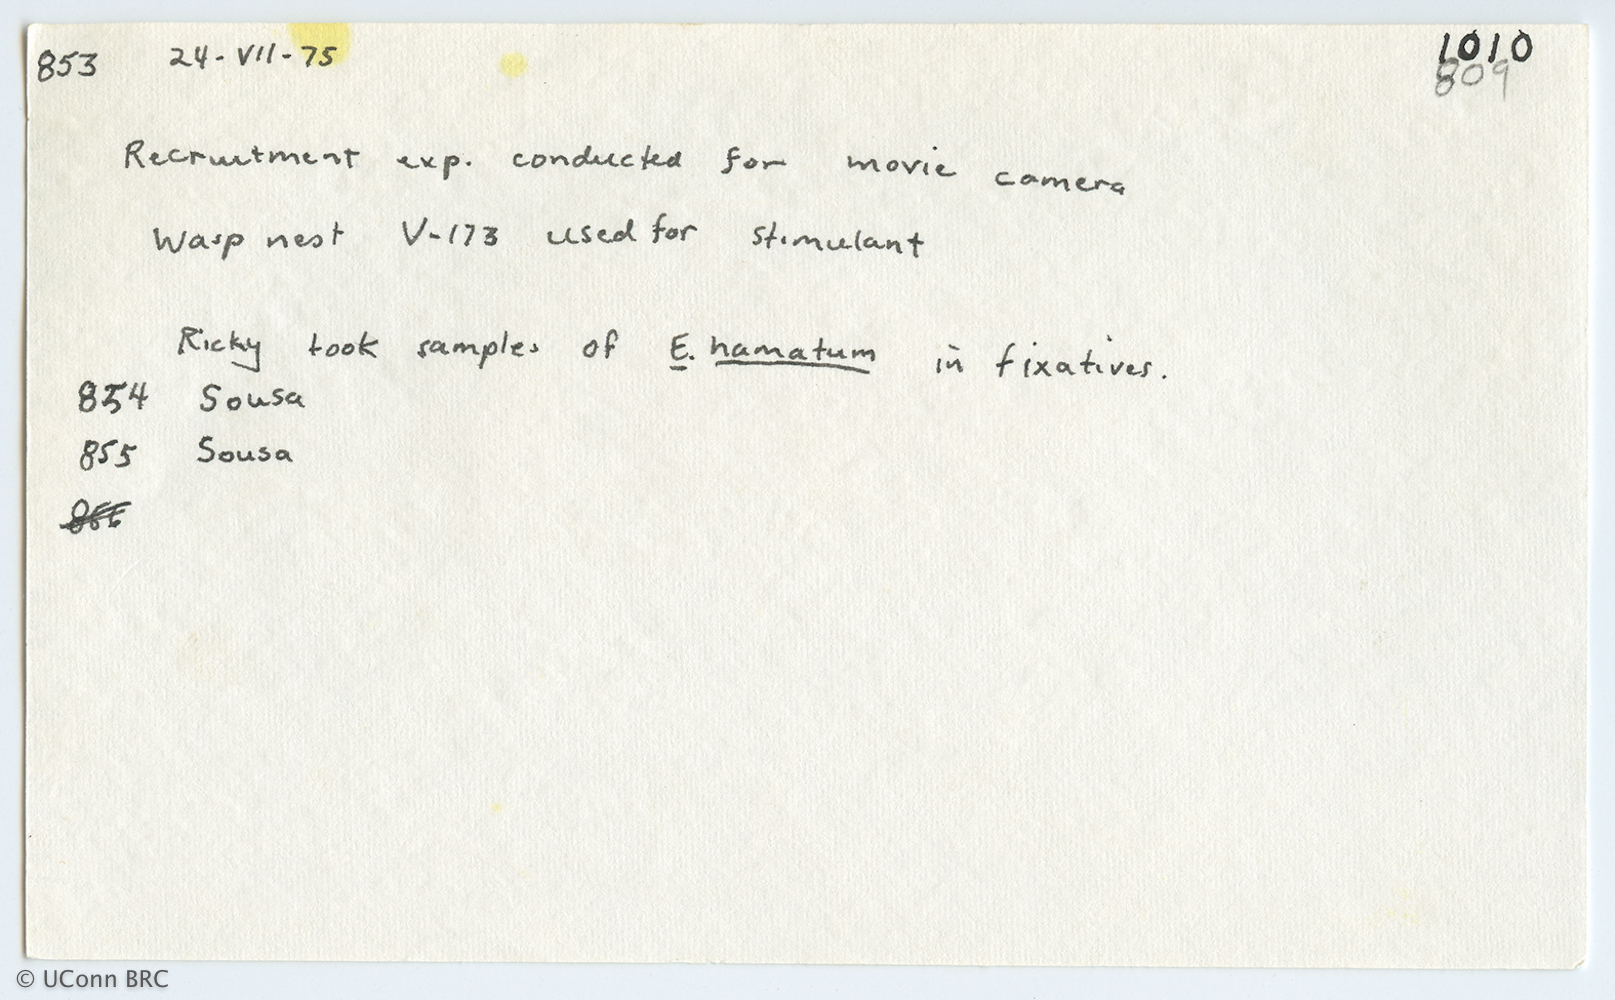 853 24-VII-75 1010
809
Recruitment exp. conducted for movie camera
Wasp nest V-173 used for stimulant
Ricky took samples of E. hamatum in fixatives.
854 Sousa
855 Sousa
856
© UConn BRC